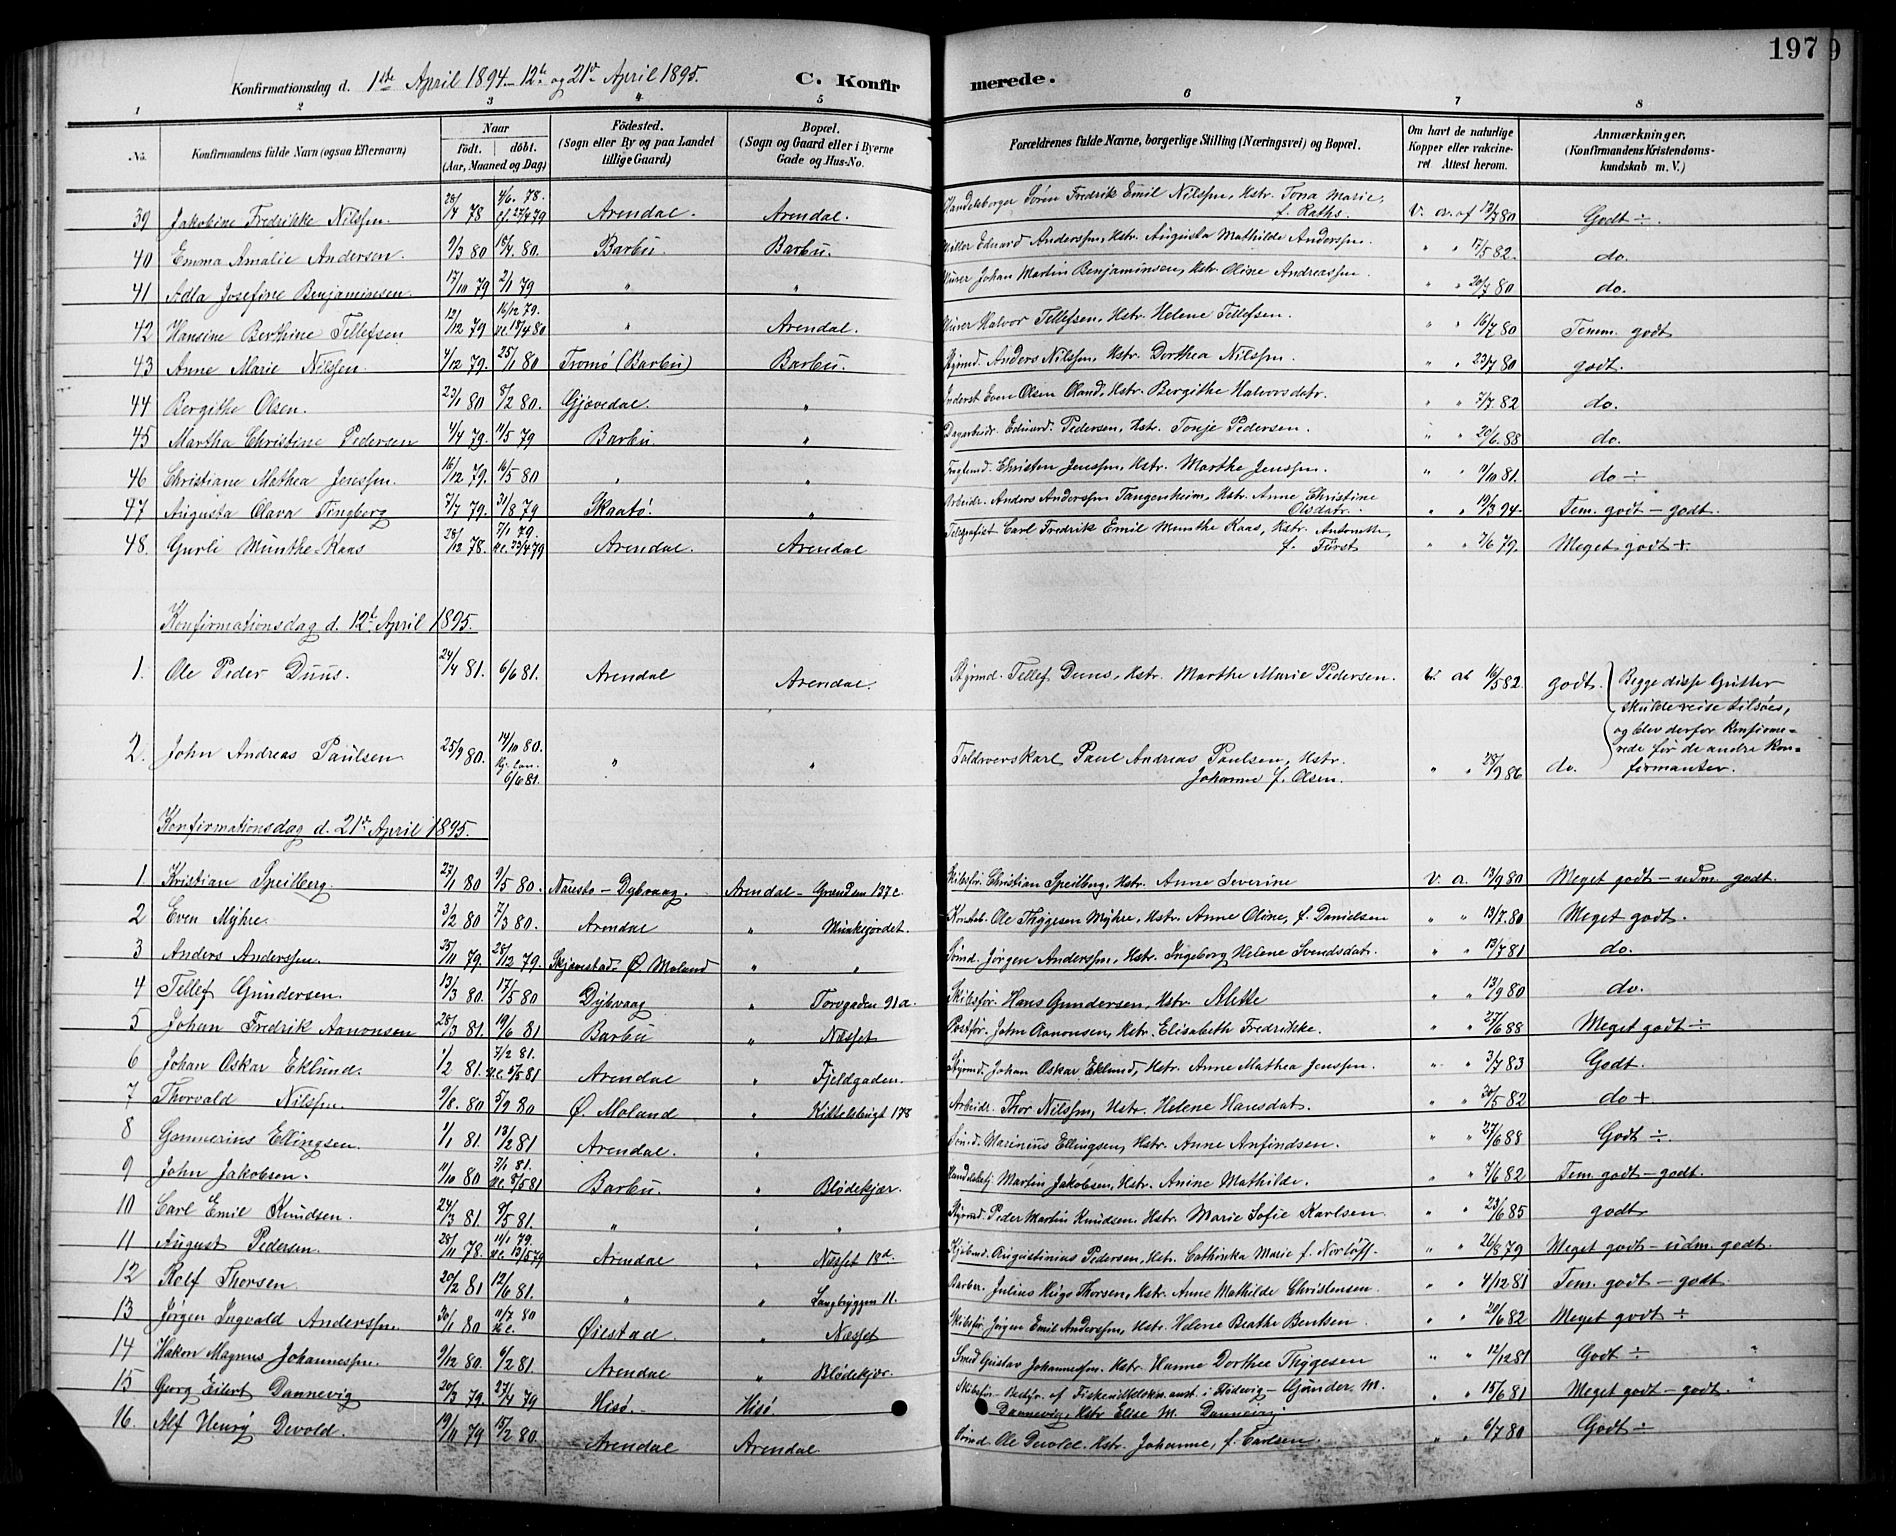 197
Konfirmationsdag d. 1ste April 1894 - 12te og 21de April 1895. C. Konfirmerede.
1 2 3 4 5 6 7 8
No. Konfirmandens fulde Navn (ogsaa Efternavn) Naar født. døbt. (Aar, Maaned og Dag) Födested. (Sogn eller By og paa Landet tillige Gaard) Bopæl. (Sogn og Gaard eller i Byerne Gade og Hus-No. Forældrenes fulde Navne, borgerlige Stilling (Næringsvei) og Bopæl. Om havt de naturlige Kopper eller vakcineret Attest herom. Anmærkninger, (Konfirmandens Kristendomskundskab m. V.)
39 Jakobine Fredrikke Nilssen 28/7 78 4/6. 78. ef. 27/4 79 Arendal. Arendal. Handelsborger Søren Fredrik Emil Nilssen, Hstr. Tona Marie, f. Raths. V. a. af 12/7 80 Godt ÷
40 Emma Amalie Andersen. 9/3 80 18/4. 80. Barbu. Barbu. Eduard Anderssen, Hstr. Augusta Mathilde Anderssen. " " 17/5 82. do.
41 Adla Josefine Benjaminsen 17/10 79 2/1 79 " " Murer Johan Martin Benjaminsen, Hstr. Oline Andreassen. " " 20/7 80 do.
42 Hansine Berthine Tellefsen 12/12 79 16/12 79. 18/4 80 " Arendal. Murer Halvor Tellefsen, Hstr. Helene Tellefsen " " 16/7 80 Temm. godt
43 Anne Marie Nilssen. 4/12 79. 25/1 80 Tromø (Barbu) Barbu. Styrmd. Anders Nilssen, Hstr. Dorthea Nilssen. " " 23/7 80 godt.
44 Bergithe Olsen. 23/1 80 8/2 80. Gjøvedal. " Inderst Even Olsen Oland, Hstr. Bergithe Halvorsdatr. " " 7/7. 82 do.
45 Martha Christine Pedersen 4/4 79. 11/5 79 Barbu " Dagarbeidr. Eduard Pedersen, Hstr. Tonje Pedersen. " " 20/6. 88 do.
46 Christiane Mathea Jenssen. 16/12 79. 16/5 80 " " Christen Jenssen, Hstr. Marthe Jenssen. " " 9/10 81. do ÷
47 Augusta Olava Tingberg 7/7 79. 31/8 79 Skaatø. " Arbeidr. Anders Anderssen Tangenheim, Hstr. Anne Christine Olsdatr. " " 19/3 94 Tem. godt - godt.
48. Gurli Munthe-Kaas 28/12 78. 7/1 79. 23/4 79 Arendal. Arendal Telegrafist Carl Fredrik Emil Munthe Kaas, Hstr. f. Fürst " " 7/6 79. Meget godt +
Konfirmationsdag d. 12te April 1895.
1. Ole Peder Duus. 24/4 81. 6/6 81. Arendal Arendal. Styrmd. Tellef Duus, Hstr. Marthe Marie Pedersen. V. at. 16/5 82 godt.
Begge disse Gutter skulde reise tilsøes, og blev derfor Konfirmerede før de andre Konfirmanter.
2. John Andreas Paulsen 25/9 80. 14/10 80. 6/6 81. " " Toldroerskarl Paul Andreas Paulsen, Hstr. Johanne f. Olsen. " " 28/9 86 do.
Konfirmationsdag d. 21de April 1895.
1. Kristian Speilberg. 27/1 80 9/5 80. Næsto - Dybvaag. Arendal - Grunden 137c Skibsfør. Christian Speilberg, Hstr. Anne Severine V. a. 13/9 80 Meget godt - udm. godt.
2 Even Myhre. 3/2 80 7/3 80. Arendal " Munkejordet. Konstab. Ole Thygesen Myhre, Hstr. Anne Oline, f. Danielsen " " 13/7. 80 Meget godt.
3 Anders Anderssen. 25/11 79 28/12 79. Skjævestad - Ø. Moland " " Sømd. Jørgen Anderssen, Hstr. Ingeborg Helene Svendsdat. " " 13/7 81 do.
4 Tellef Gundersen. 13/3 80. 17/5 80 Dybvaag " Torvgaden 91a. Skibsfør. Hans Gundersen, Hstr. Mette " " 13/9 80 do.
5 Johan Fredrik Aanonsen 28/3 81. 19/6 81 Barbu " Næsset Postfør. John Aanonsen, Hstr. Elisabeth Fredrikke. " " 27/6 88 Meget godt ÷
6 Johan Oskar Eklund. 1/2 81. 7/2 81. 5/5 81 Arendal " Fjeldgaden. Styrmd. Johan Oskar Eklund, Hstr. Anne Mathea Jenssen. " " 3/7 83 Godt.
7 Thorvald Nilssen. 9/8. 80 5/9 80 Ø. Moland " Kittelsbugt 178 Arbeidr. Thor Nilssen, Hstr. Helene Hansdat. " " 20/5 82 do +
8 Gommerius Ellingsen 1/1 81. 13/2 81 Arendal. " Sømd. Marinius Ellingsen, Hstr. Anne Anfindsen. " " 27/6 88 Godt ÷
9 John Jakobsen. 11/10 80 7/1 81. 8/5 81 Barbu. " Blødekjær. Martin Jakobsen, Hstr. Anine Mathilde. " 7/6 82 Tem. godt - godt.
10 Carl Emil Knudsen. 24/3 81. 9/5 81. " " " Styrmd. Peder Martin Knudsen. Hstr. Marie Sofie Karlsen " " 23/6 85 godt
11 August Pedersen. 28/11 78. 14/1 79. 13/5 79 Arendal " Næsset 18d. Kjøbmd. Augustinius Pedersen, Hstr. Cathinka Marie f. Norløff. " " 26/8 79 Meget godt - udm. godt.
12 Rolf Thorsen 20/2 81 12/6 81. " " Langbryggen 11. Julius Hugo Thorsen, Hstr. Anne Mathilde Christensen " " 4/12 81 Tem. godt - godt.
13 Jørgen Ingvald Anderssen. 30/1 80 11/7 80 Øiestad. " Næsset Skibsfør. Jørgen Emil Anderssen, Hstr. Helene Beathe Bentsen. " 20/6 82 Meget godt ÷
14 Hakon Magnus Johannessen. 9/12 80. 6/2 81. Arendal " Blødekjær. Smed Gustav Johannessen. Hstr. Hanne Dorthea Thygesen " " 12/12 81 Godt ÷
15 Georg Eilert Dannevig 20/3 79. 27/4 79 Hisø. Hisø. Skibsfør. - Bestyr. af Fiskeudklækn. anst. i Flødevig - Gunder M. Dannevig, Hstr. Elise M. Dannevig " " 15/6 81 Meget godt - godt.
16. Alf Henry Devold. 19/11 79 15/2 80. Arendal Arendal Sømd. Ole Devold. Hstr. Johanne, f. Carlsen " " 6/7 80 Godt ÷